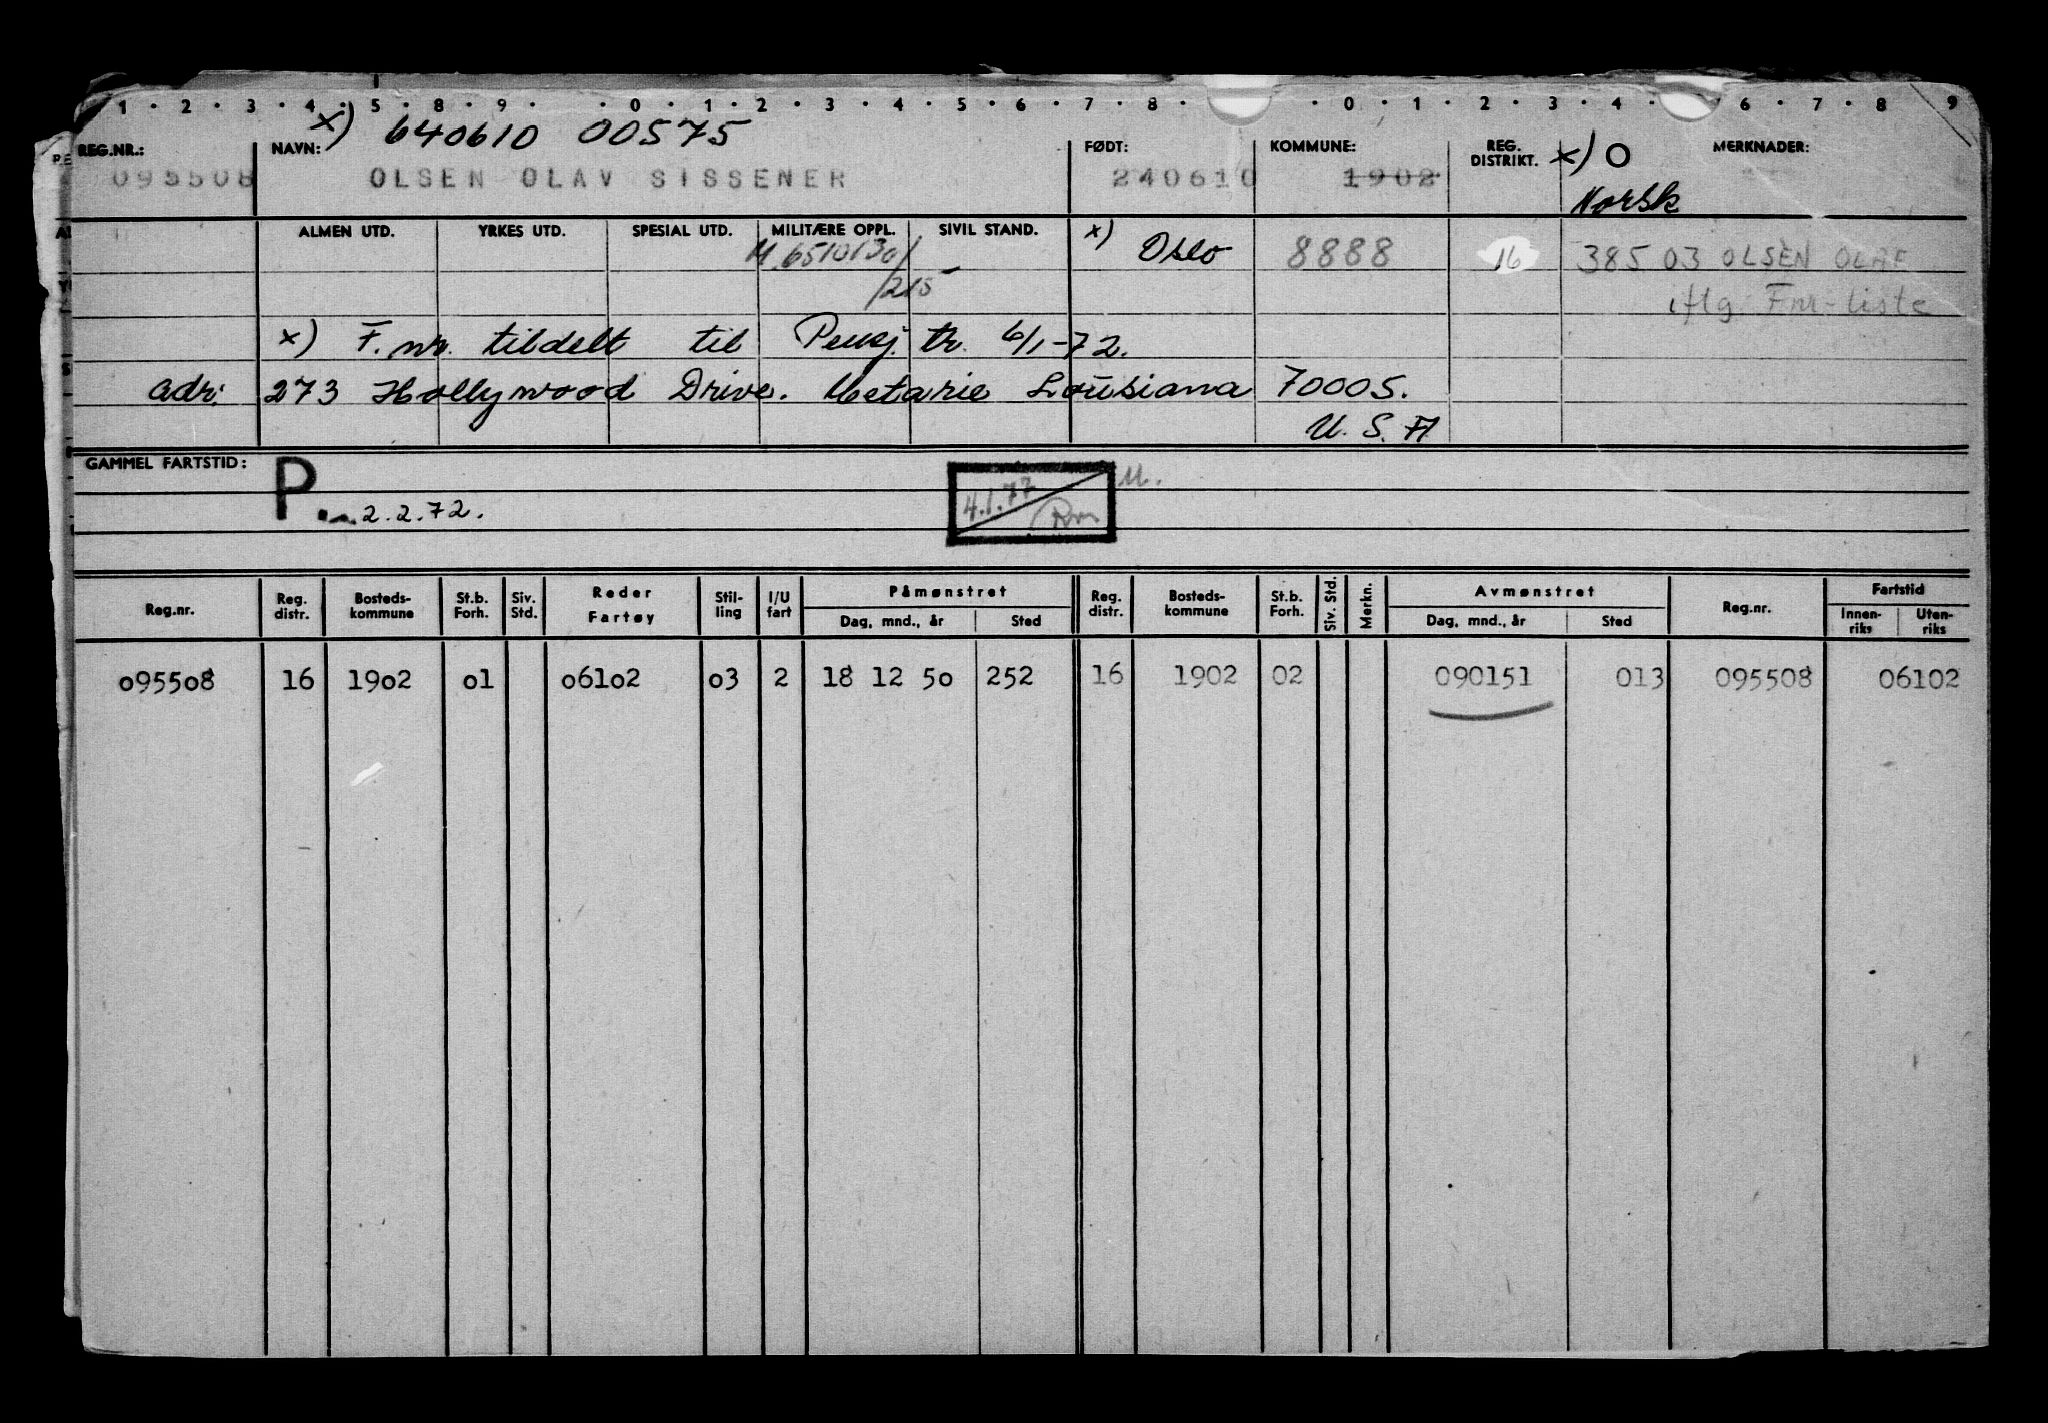 1 · 2 · 3 · 4 · 5 · 8 · 9 · · 0 · 1 · 2 · 3 · 4 · 5 · 6 · 7 · 8 · · 0 · 1 · 2 · 3 · 4 · 6 · 7 · 8 9
x) 640610 00575
REG.NR.: NAVN: FØDT: KOMMUNE: REG. DISTRIKT. x) O MERKNADER:
095508 OLSEN OLAV SISSENER 240610 1902
Norsk
ALMEN UTD. YRKES UTD. SPESIAL UTD. MILITÆRE OPPL. SIVIL STAND. x) Oslo 8888 16 385 03 OLSEN OLAF
/215 iflg. Fnr-liste
x) F.nr. tildelt til Pensj. tr. 6/1-72.
adr: 273 Hollywood Drive. Metarie Louisiana 70005.
U.S.A
GAMMEL FARTSTID: P 4.1.77 M.
2.2.72.
Reg.nr. Reg. distr. Bosteds- kommune St.b. Forh. Siv. Std. Reder Fartøy Stil- ling I/U fart Påmønstret Dag, mnd., år Sted Reg. distr. Bosteds- kommune St.b. Forh. Siv. Std. Merkn. Avmønstret Dag, mnd., år Sted Reg.nr. Fartstid Innen- riks Uten- riks
095508 16 1902 01 06102 03 2 18 12 50 252 16 1902 02 090151 013 095508 06102